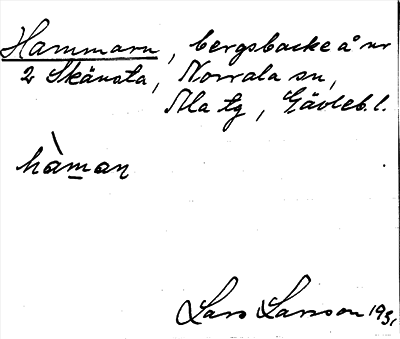 Hammarn, bergsbacke å nr
2 Skänsta, Norrala sn,
Ala tg, Gävleb. l.
hàman
Lars Larsson 1931